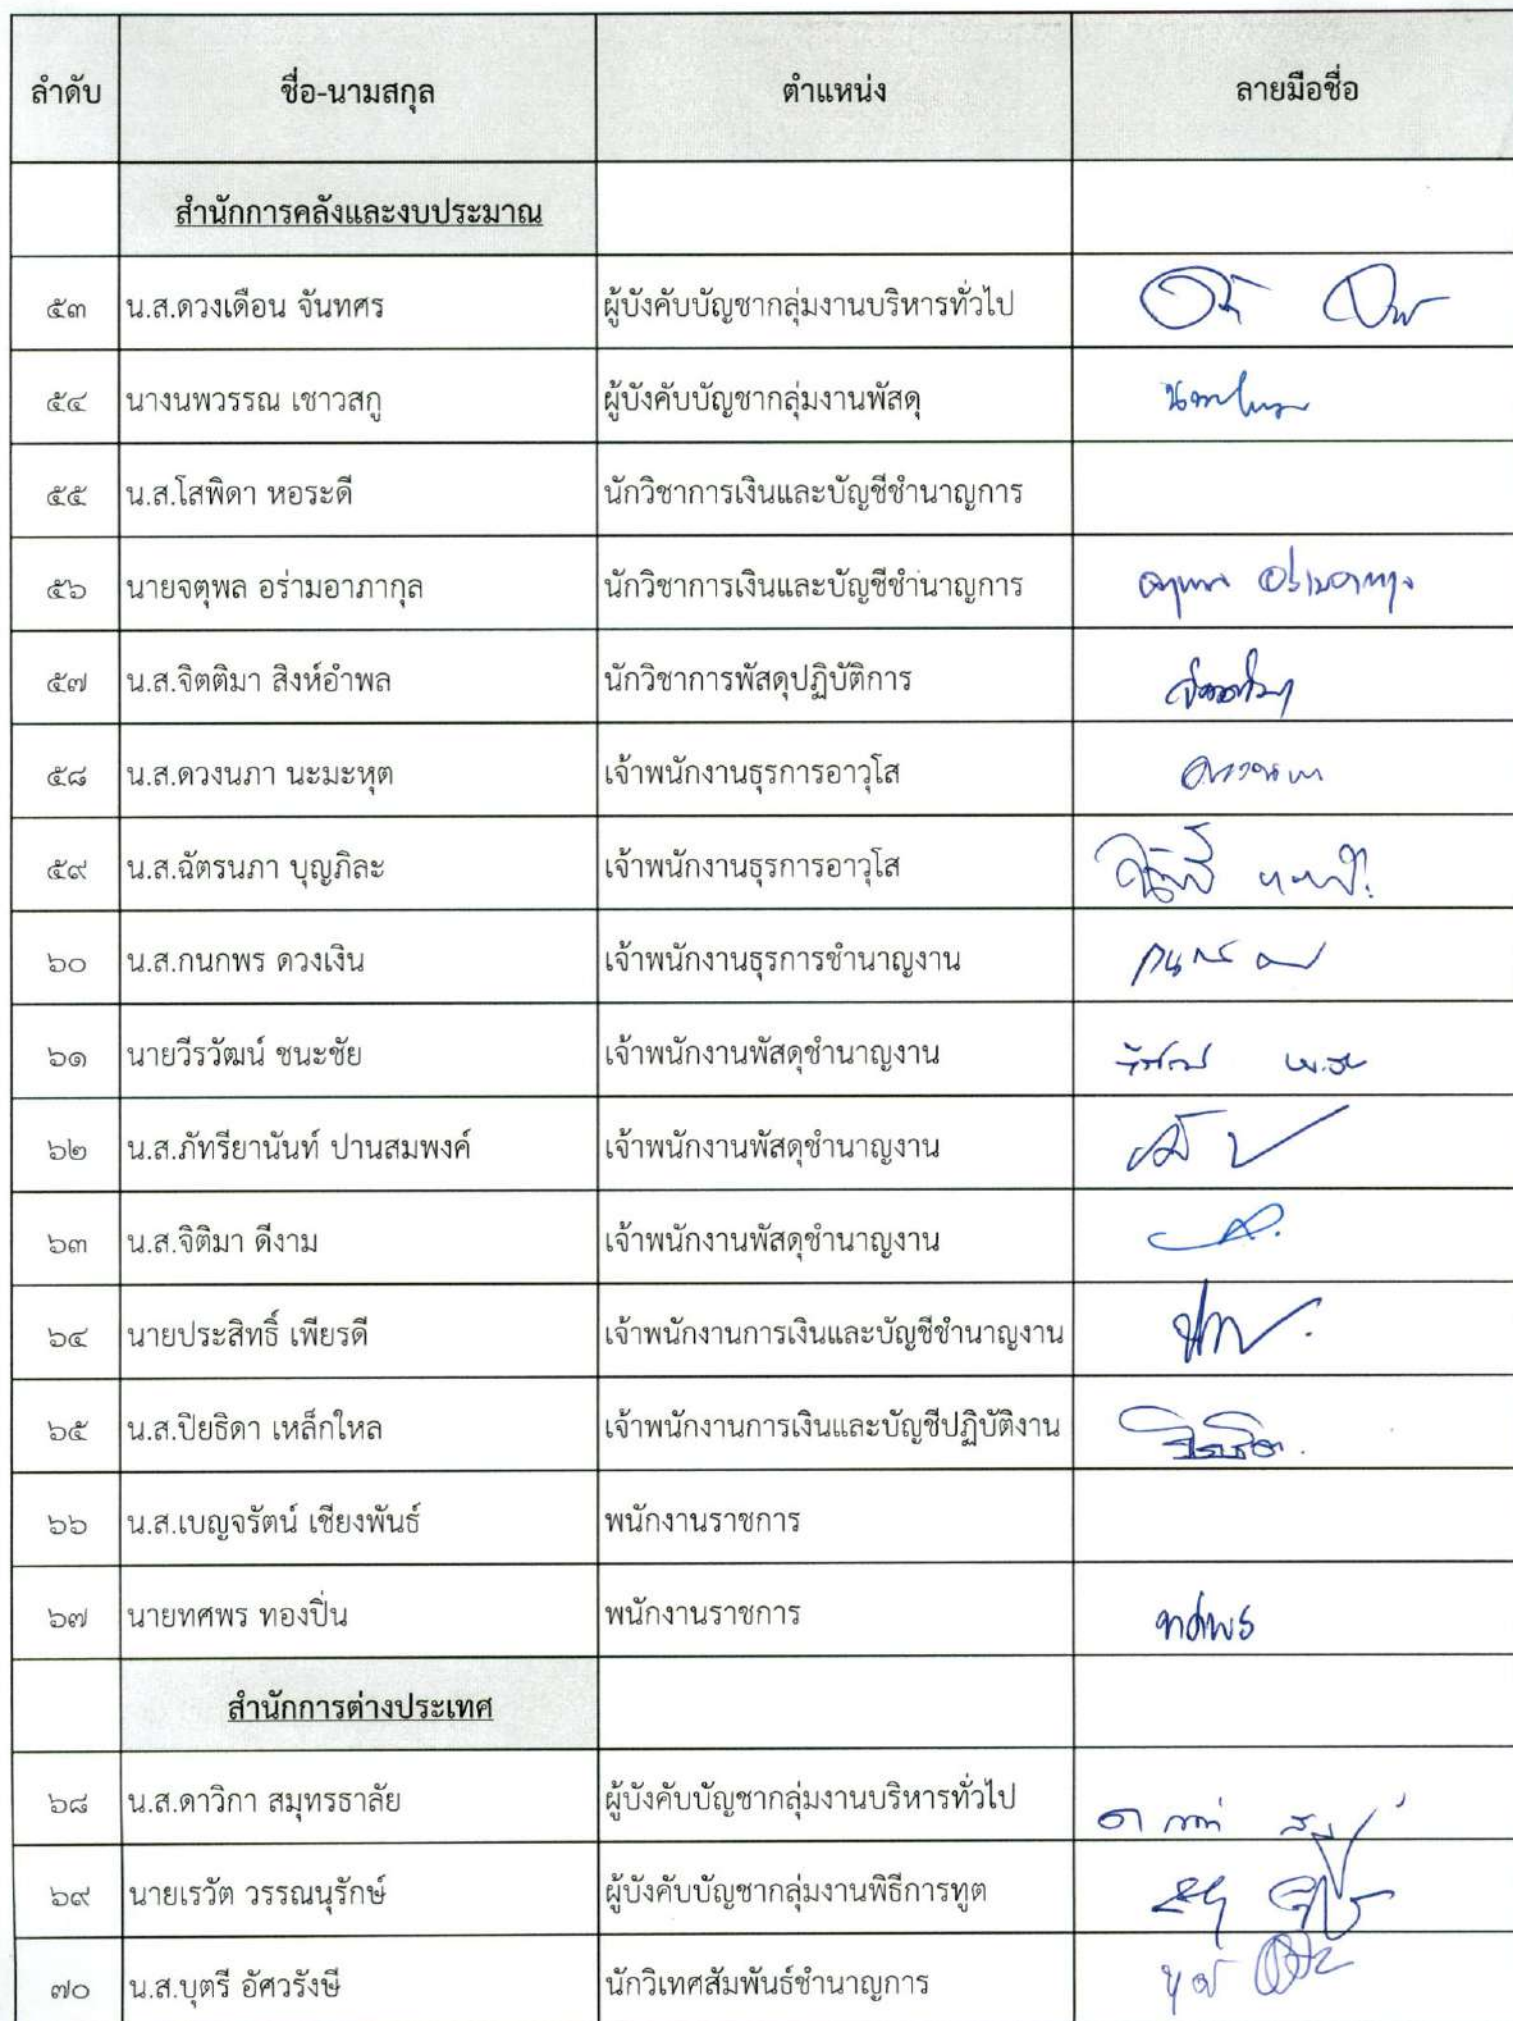 ลำดับ ชื่อ-นามสกุล ตำแหน่ง ลายมือชื่อ
สำนักการคลังและงบประมาณ
๕๓ น.ส.ดวงเดือน จันทศร ผู้บังคับบัญชากลุ่มงานบริหารทั่วไป
๕๔ นางนพวรรณ เชาวสกู ผู้บังคับบัญชากลุ่มงานพัสดุ
๕๕ น.ส.โสพิดา หอระดี นักวิชาการเงินและบัญชีชำนาญการ
๕๖ นายจตุพล อร่ามอาภากุล นักวิชาการเงินและบัญชีชำนาญการ
๕๗ น.ส.จิตติมา สิงห์อำพล นักวิชาการพัสดุปฏิบัติการ
๕๘ น.ส.ดวงนภา นะมะหุต เจ้าพนักงานธุรการอาวุโส
๕๙ น.ส.ฉัตรนภา บุญภิละ เจ้าพนักงานธุรการอาวุโส
๖๐ น.ส.กนกพร ดวงเงิน เจ้าพนักงานธุรการชำนาญงาน
๖๑ นายวีรวัฒน์ ชนะชัย เจ้าพนักงานพัสดุชำนาญงาน
๖๒ น.ส.ภัทรียานันท์ ปานสมพงค์ เจ้าพนักงานพัสดุชำนาญงาน
๖๓ น.ส.จิติมา ดีงาม เจ้าพนักงานพัสดุชำนาญงาน
๖๔ นายประสิทธิ์ เพียรดี เจ้าพนักงานการเงินและบัญชีชำนาญงาน
๖๕ น.ส.ปิยธิดา เหล็กใหล เจ้าพนักงานการเงินและบัญชีปฏิบัติงาน
๖๖ น.ส.เบญจรัตน์ เชียงพันธ์ พนักงานราชการ
๖๗ นายทศพร ทองปิ่น พนักงานราชการ ทศพร
สำนักการต่างประเทศ
๖๘ น.ส.ดาวิกา สมุทรธาลัย ผู้บังคับบัญชากลุ่มงานบริหารทั่วไป
๖๙ นายเรวัต วรรณนุรักษ์ ผู้บังคับบัญชากลุ่มงานพิธีการทูต
๗๐ น.ส.บุตรี อัศวรังษี นักวิเทศสัมพันธ์ชำนาญการ